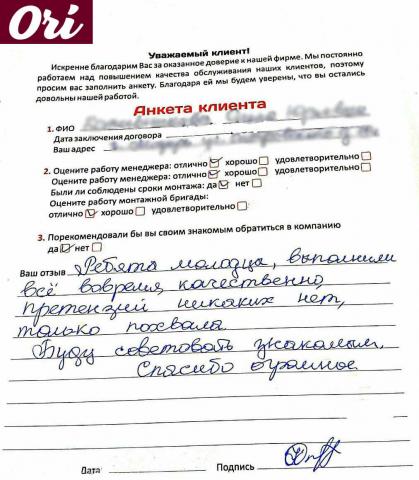 Ori
Уважаемый клиент!
Искренне благодарим Вас за оказанное доверие к нашей фирме. Мы постоянно
работаем над повышением качества обслуживания наших клиентов, поэтому
просим вас заполнить анкету. Благодаря ей мы будем уверены, что вы остались
довольны нашей работой.
Анкета клиента
1. ФИО
Дата заключения договора
Ваш адрес
2. Оцените работу менеджера: отлично хорошо удовлетворительно
Оцените работу менеджера: отлично хорошо удовлетворительно
Были ли соблюдены сроки монтажа: да нет
Оцените работу монтажной бригады:
отлично хорошо удовлетворительно
3. Порекомендовали бы вы своим знакомым обратиться в компанию
да нет
Ваш отзыв Ребята молодца, выполнили
всё вовремя, качественно,
претензий никаких нет,
только похвала
Буду советовать знакомым.
Спасибо огромное.
Дата Подпись